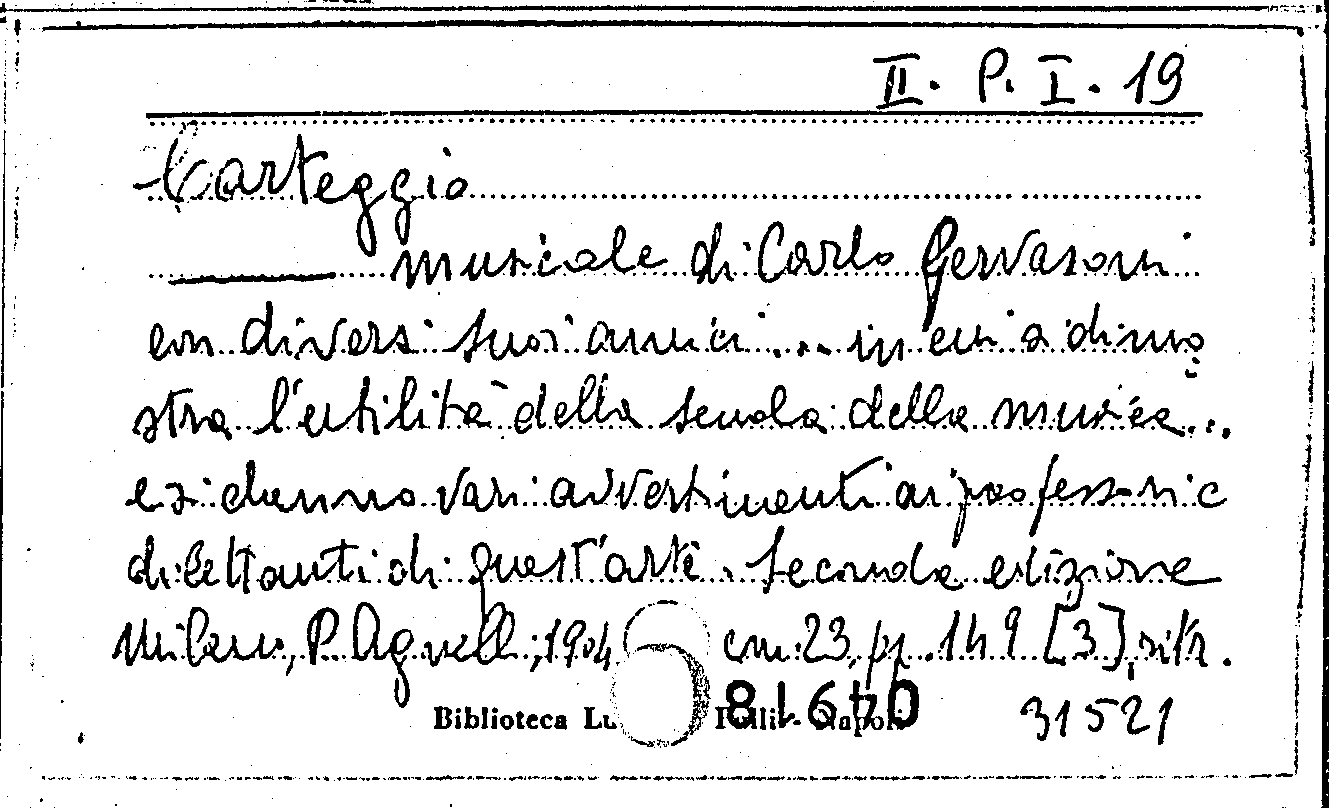 II. P. I. 19
Carteggio
musicale di Carlo Gervasoni
con diversi suoi amici ... in cui si dimo
stra l'utilità della scuola della musica...
e si danno vari avvertimenti ai professori e
dilettanti di quest'arte. Seconda edizione
Milano, P. Agnelli, 1904 cm. 23, pp. 149 [3], ritr.
31521
Biblioteca Napoli
046918